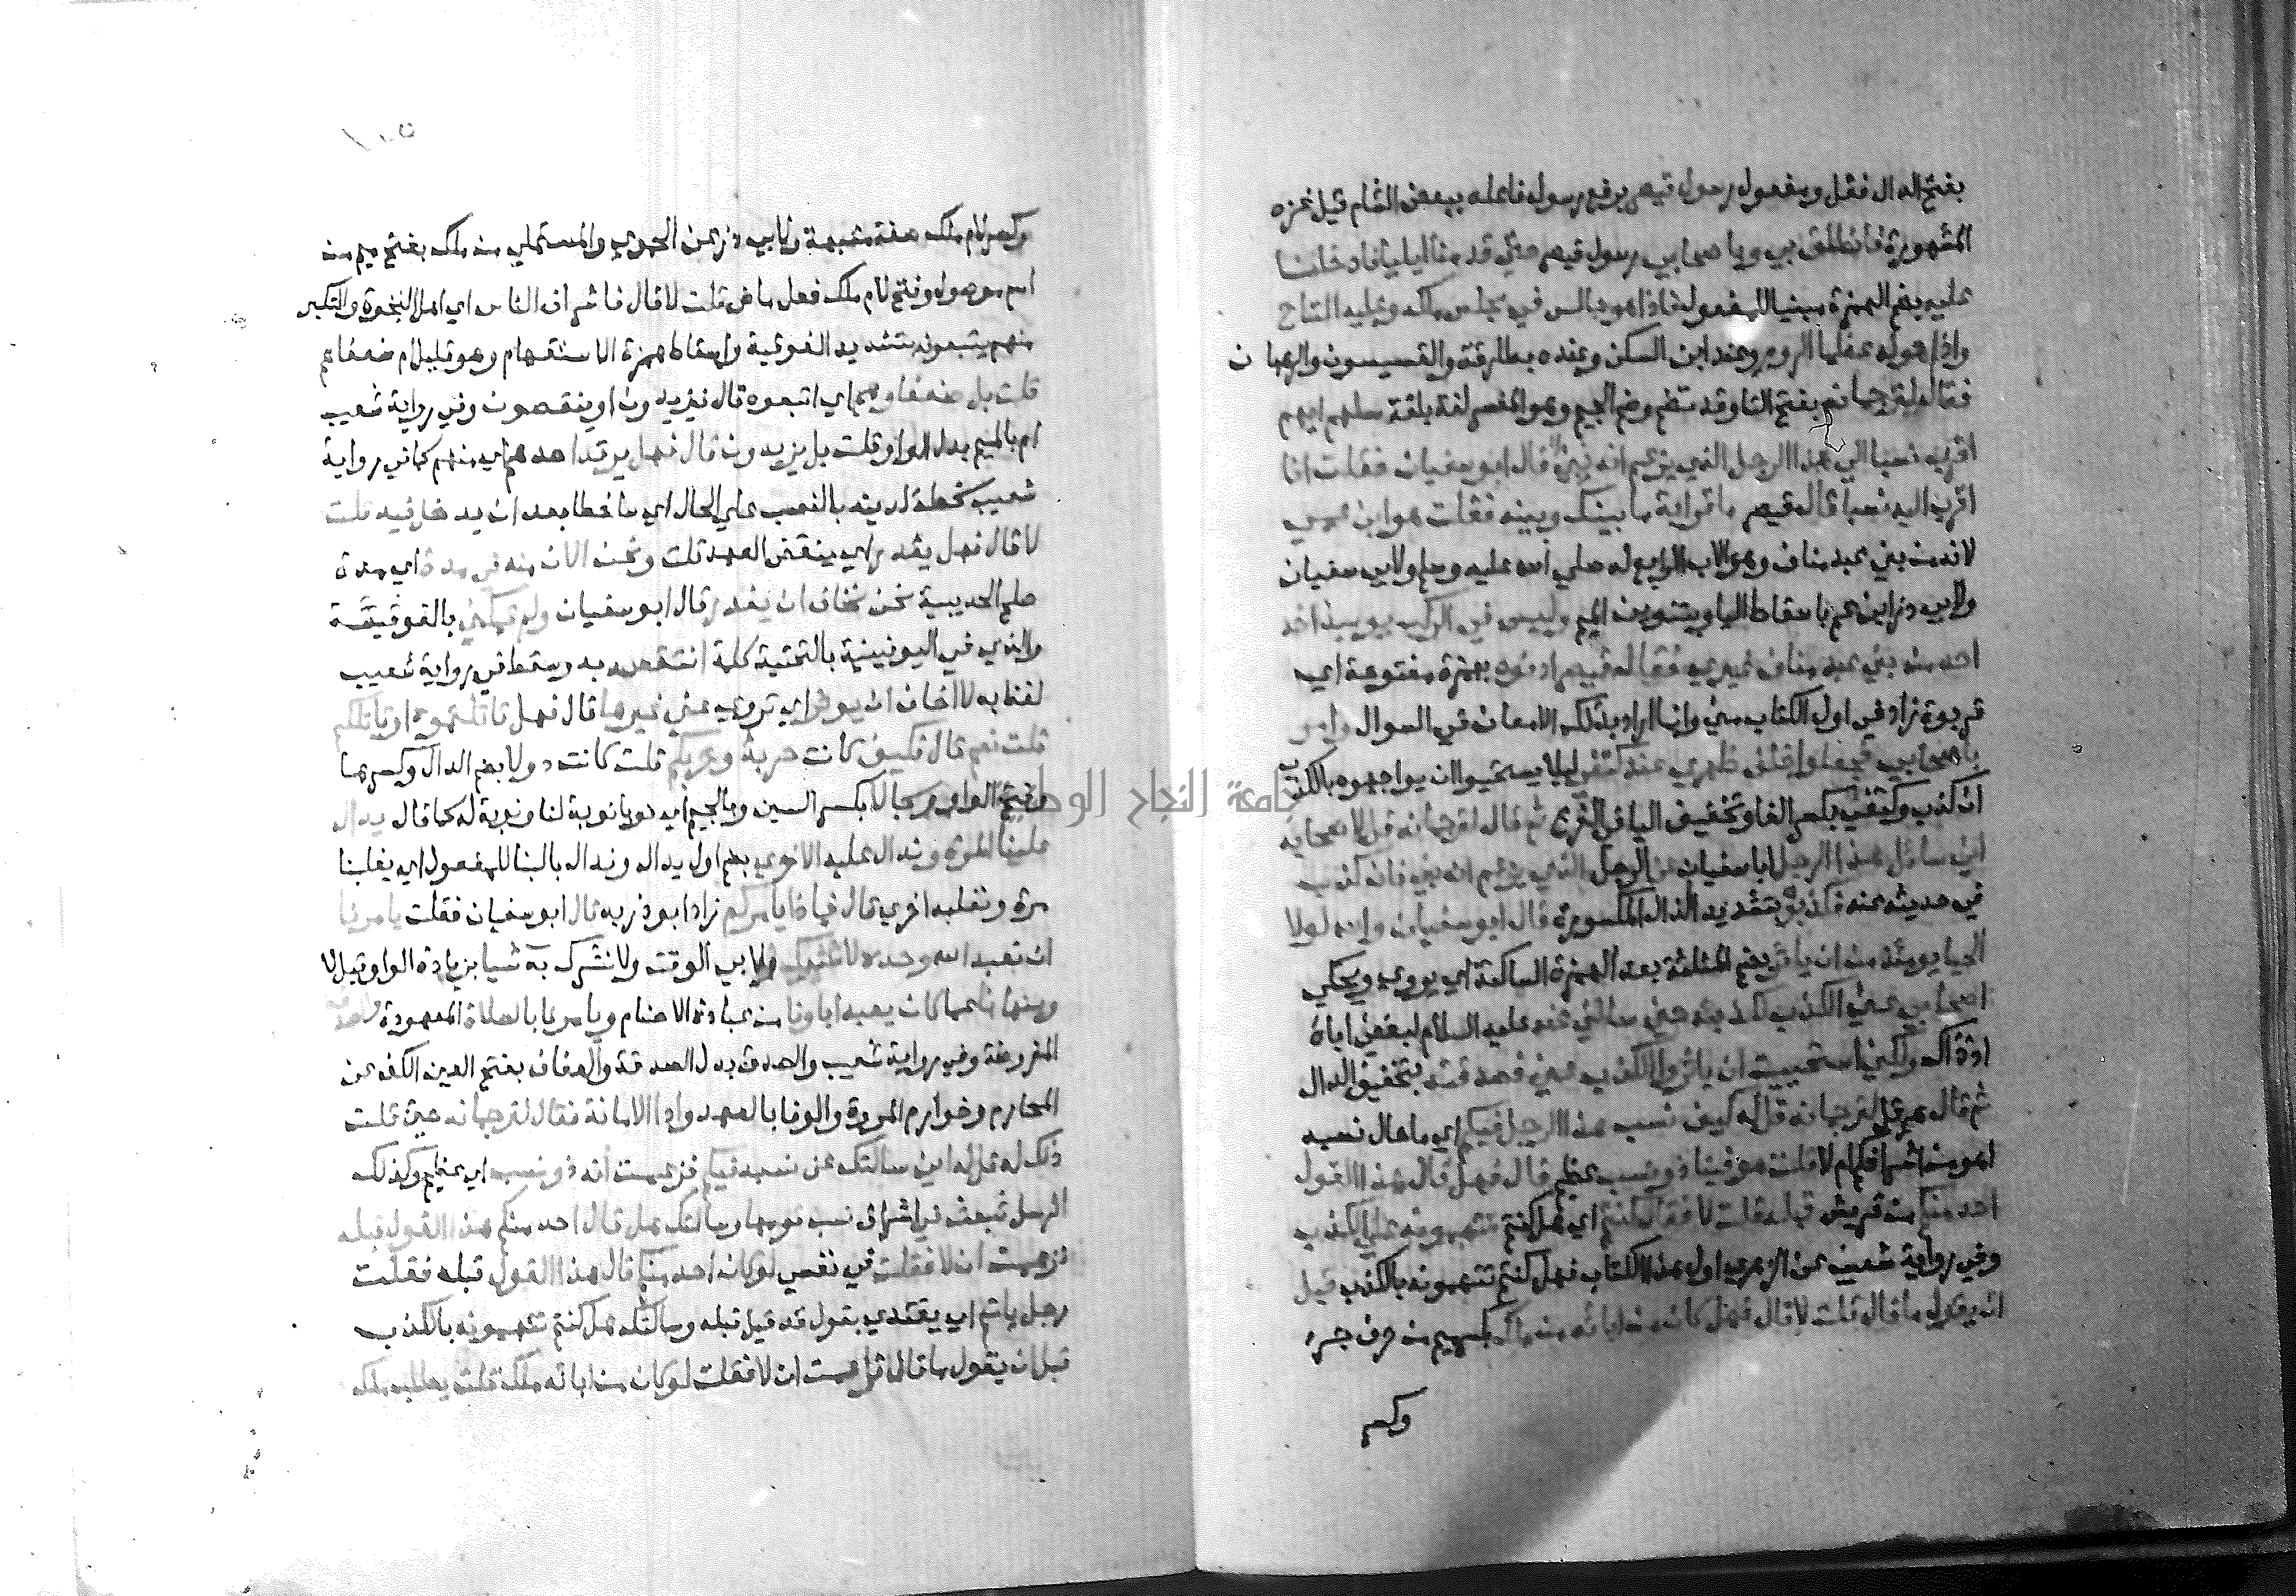 بفتح الدال فقل ومفعول رسول قيصر برفع رسول فاعله ببعض الشام قيل غزه
المشهورة فانطلق بي وباصحابي رسول قيصر حتي قدمنا ايليا فادخلنا
عليه بضم الهمزة مبنيا للمفعول فاذا هو جالس في مجلس ملكه وعليه التاج
واذا حوله عظما الروم وعند ابن السكن وعنده بطارقته والقسيسون والرهبان
فقال لترجمانه بفتح التا وقد تضم وضم الجيم وهو المفسر لغة بلغة سلهم ايهم
اقرب نسبا الي هذا الرجل الذي يزعم انه نبي قال ابو سفيان فقلت انا
اقرب اليه نسبا قال قيصر ما قرابة ما بينك وبينه فقلت هو ابن عمي
لانه من بني عبد مناف وهو الاب الرابع له صلي الله عليه وسلم ولابي سفيان
ولابي ذر ابن عم باسقاط اليا وبتنوين الميم وليس في الركب يوميذ احد
احد من بني عبد مناف غيري فقال قيصر ادنوه بهمزة مفتوحة اي
قربوه زاد في اول الكتاب مني وانما اراد بذلك الامعان في السوال وامر
باصحابي فجعلوا خلف ظهري عند كتفي ليلا يستحيوا ان يواجهوه بالكذب
ان كذب وكتفي بكسر الفا وتخفيف اليا في الفرع ثم قال لترجمانه قل لاصحابه
اني سائل هذا الرجل ابا سفيان عن الرجل الذي يزعم انه نبي فان كذب
في حديثه عنه فكذبوه بتشديد الذال المكسورة قال ابو سفيان والله لولا
الحيا يومئذ من ان ياثر بضم المثلثة بعد الهمزة الساكنة اي يروي ويحكي
اصحابي عني الكذب لكذبته حين سالني عنه عليه السلام لبغضي اياه
اذ ذاك ولكني استحييت ان ياثروا الكذب عني فصدقته بتخفيف الدال
ثم قال هرقل لترجمانه قل له كيف نسب هذا الرجل فيكم اي ما حال نسبه
اهو من اشرافكم ام لا قلت هو فينا ذو نسب عظيم قال فهل قال هذا القول
احد منكم من قريش قبله قلت لا فقال كنتم اي هل كنتم تتهمونه علي الكذب
وفي رواية شعيب عن الزهري اول هذا الكتاب فهل كنتم تتهمونه بالكذب قبل
ان يقول ما قال قلت لا قال فهل كان من ابائه من ملك بكسر ميم من حرف جر
وكسر
وكسر لام ملك صفة مشبهة ولابي ذر عن الحموي والمستملي من ملك بفتح ميم من
اسم موصول وفتح لام ملك فعل ماض قلت لا قال فاشراف الناس اي اهل النخوة والتكبر
منهم يتبعونه بتشديد الفوقية واسقاط همزة الاستفهام وهو قليل ام ضعفاهم
قلت بل ضعفاوهم اي اتبعوه قال فيزيدون او ينقصون وفي رواية شعيب
ام بالميم بدل الواو قلت بل يزيدون قال فهل يرتد احد هم اي منهم كما في رواية
شعيب سخطة لدينه بالنصب علي الحال اي ساخطا بعد ان يدخل فيه قلت
لا قال فهل يغدر اي ينقض العهد قلت ونحن الان منه في مدة اي مدة
صلح الحديبية نحن نخاف ان يغدر قال ابو سفيان ولم تمكني بالفوقية
والذي في اليونينية بالتحتية كلمة انتقصه به وسقط في رواية شعيب
لفظ به لا اخاف ان يوثر اي تروي عني غيرها قال فهل قاتلتموه او قاتلكم
قلت نعم قال فكيف كانت حربه وحربكم قلت كانت دولا بضم الدال وكسرها
وفتح الواو وسجالا بكسر السين وبالجيم اي نوبا نوبة لنا ونوبة له كما قال يدال
علينا المرة وندال عليه الاخري بضم اول يدال وندال بالبنا للمفعول اي يغلبنا
مرة ونغلبه اخري قال فماذا يامركم زاد ابو ذر به قال ابو سفيان فقلت يامرنا
ان نعبد الله وحده لا نشرك ولابي الوقت ولا نشرك به شيا بزيادة الواو قبل لا
وينهانا عما كان يعبد اباونا من عبادة الاصنام ويامرنا بالصلاة المعهودة والصدقة
المفروضة وفي رواية شعيب والصدق بدل الصدقة والعفاف بفتح العين الكف عن
المحارم وخوارم المروة والوفا بالعهد وادا الامانة فقال لترجمانه حين قلت
ذلك له قل له اني سالتك عن نسبه فيكم فزعمت انه ذو نسب اي عظيم وكذلك
الرسل تبعث في اشراف نسب قومها وسالتك هل قال احد منكم هذا القول قبله
فزعمت ان لا فقلت في نفسي لو كان احد منكم قال هذا القول قبله فقلت
رجل ياتم اي يقتدي بقول قد قيل قبله وسالتك هل كنتم تتهمونه بالكذب
قبل ان يقول ما قال فزعمت ان لا فقلت لو كان من ابائه ملك قلت يطلب ملك
جامعة النجاح الوطنية